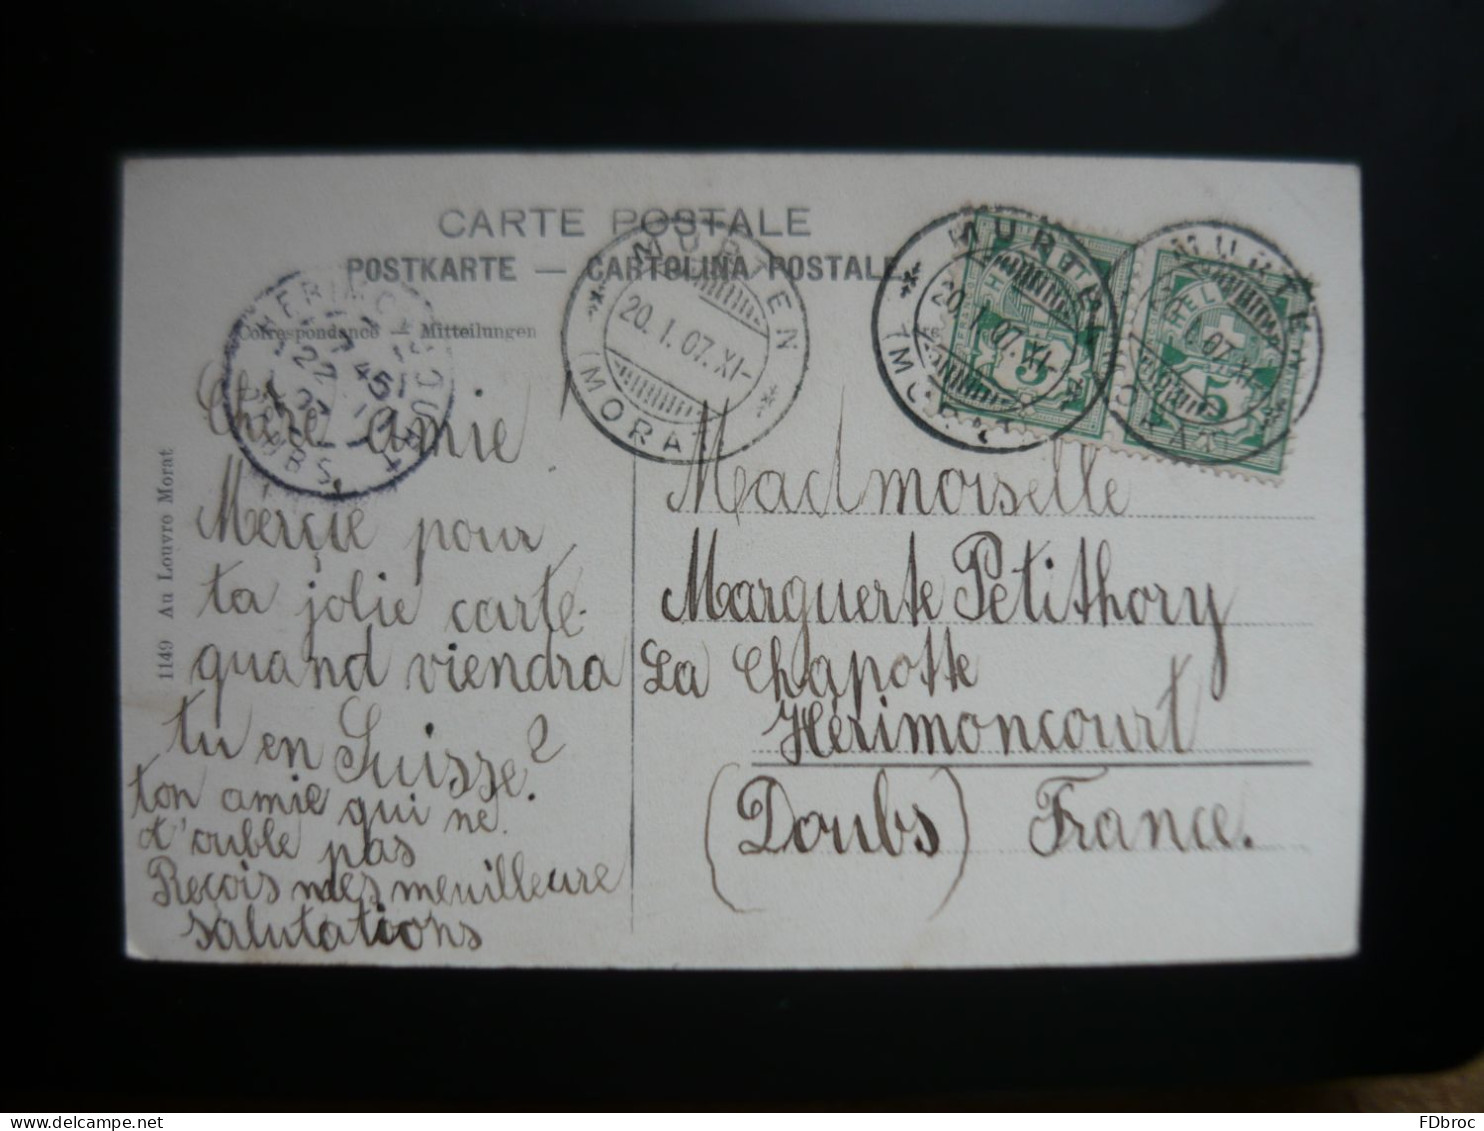 CARTE POSTALE
POSTKARTE — CARTOLINA POSTALE
Correspondance — Mitteilungen
MURTEN
20. I. 07. XI-
(MORAT)
MURTEN
20. I. 07. XI-
(MORAT)
MURTEN
07. XI-
MORAT
HELVETIA
5
5
HERIMONCOURT
DOUBS
1149 Au Louvro Morat
Chère amie
Merçie pour
ta jolie carte.
quand viendra
tu en Suisse?
ton amie qui ne
t'ouble pas
Reçois mes meuilleure
salutations
Madmoiselle
Marguerte Petithory
La Chapotte
Hérimoncourt
(Doubs) France.
www.delcampe.net
FDbroc